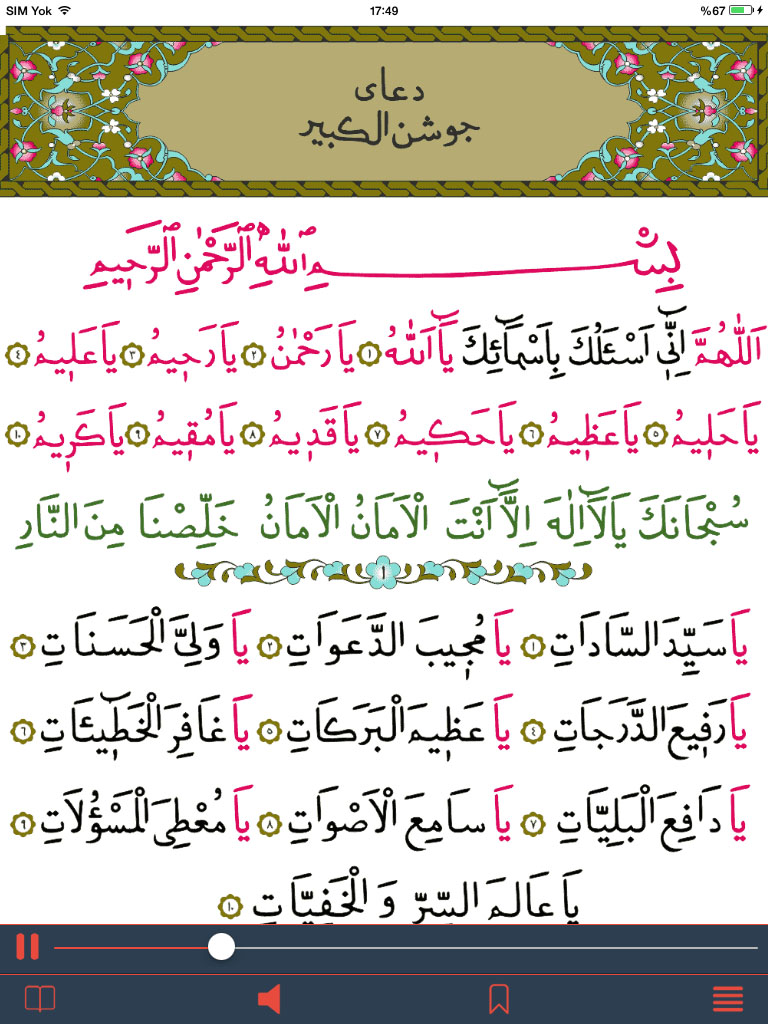 SIM Yok 17:49 %67
دعای
جوشن الكبير
بِسْمِ اللهِ الرَّحْمٰنِ الرَّحِيمِ
اَللّٰهُمَّ اِنِّٓي اَسْئَلُكَ بِاَسْمَٓائِكَ يَٓا اَللهُ ١ يَا رَحْمٰنُ ٢ يَا رَحِيمُ ٣ يَا عَلِيمُ ٤
يَا حَلِيمُ ٥ يَا عَظِيمُ ٦ يَا حَكِيمُ ٧ يَا قَدِيمُ ٨ يَا مُقِيمُ ٩ يَا كَرِيمُ ١٠
سُبْحَانَكَ يَا لَٓا اِلٰهَ اِلَّٓا اَنْتَ الْاَمَانُ الْاَمَانُ خَلِّصْنَا مِنَ النَّارِ
١
يَا سَيِّدَ السَّادَاتِ ١ يَا مُجِيبَ الدَّعَوَاتِ ٢ يَا وَلِيَّ الْحَسَنَاتِ ٣
يَا رَفِيعَ الدَّرَجَاتِ ٤ يَا عَظِيمَ الْبَرَكَاتِ ٥ يَا غَافِرَ الْخَطِٓيئَاتِ ٦
يَا دَافِعَ الْبَلِيَّاتِ ٧ يَا سَامِعَ الْاَصْوَاتِ ٨ يَا مُعْطِيَ الْمَسْؤُلَاتِ ٩
يَا عَالِمَ السِّرِّ وَ الْخَفِيَّاتِ ١٠